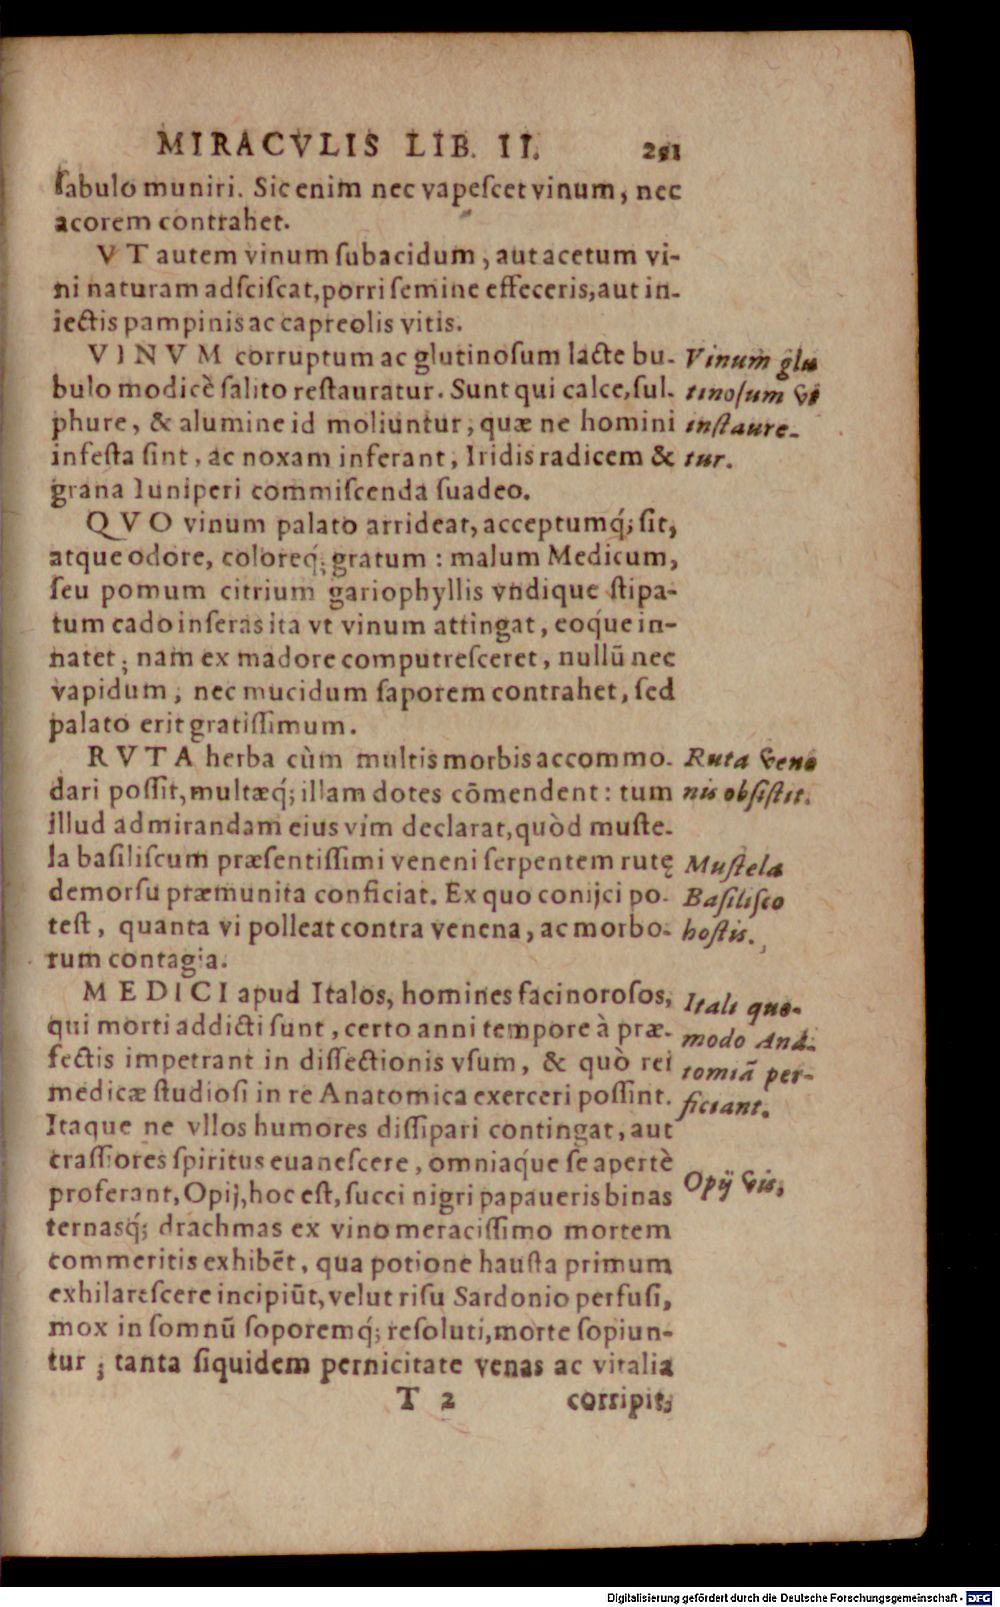 MIRACVLIS LIB. II. 291
ſabulo muniri. Sic enim nec vapeſcet vinum, nec
acorem contrahet.
VT autem vinum ſubacidum, aut acetum vi-
ni naturam adſciſcat, porri ſemine effeceris, aut in-
iectis pampinis ac capreolis vitis.
VINVM corruptum ac glutinoſum lacte bu-
bulo modicè ſalito reſtauratur. Sunt qui calce, ſul-
phure, & alumine id moliuntur, quæ ne homini
infeſta ſint, ac noxam inferant, Iridis radicem &
grana Iuniperi commiſcenda ſuadeo.
Vinum glu
tinoſum vt
inſtaure-
tur.
QVO vinum palato arrideat, acceptumq́; ſit,
atque odore, coloreq́; gratum : malum Medicum,
ſeu pomum citrium gariophyllis vndique ſtipa-
tum cado inſeras ita vt vinum attingat, eoq́ue in-
natet; nam ex madore computreſceret, nullū nec
vapidum, nec mucidum ſaporem contrahet, ſed
palato erit gratiſſimum.
RVTA herba cùm multis morbis accommo-
dari poſſit, multæq́; illam dotes cōmendent : tum
illud admirandam eius vim declarat, quòd muſte-
la baſiliſcum præſentiſſimi veneni ſerpentem rutę
demorſu præmunita conficiat. Ex quo conijci po-
teſt, quanta vi polleat contra venena, ac morbo-
rum contagia.
Ruta vene
nis obſiſtit.
Muſtela
Baſiliſco
hoſtis.
MEDICI apud Italos, homines facinoroſos,
qui morti addicti ſunt, certo anni tempore à præ-
fectis impetrant in diſſectionis vſum, & quò rei
medicæ ſtudioſi in re Anatomica exerceri poſſint.
Itaque ne vllos humores diſſipari contingat, aut
craſſiores ſpiritus euaneſcere, omniaq́ue ſe apertè
proferant, Opij, hoc eſt, ſucci nigri papaueris binas
ternasq́; drachmas ex vino meraciſſimo mortem
commeritis exhibēt, qua potione hauſta primum
exhilareſcere incipiūt, velut riſu Sardonio perfuſi,
mox in ſomnū ſoporemq́; reſoluti, morte ſopiun-
tur ; tanta ſiquidem pernicitate venas ac vitalia
Itali quo-
modo Ana-
tomiā per-
ficiant.
Opij vis,
T 2 corripit,
Digitalisierung gefördert durch die Deutsche Forschungsgemeinschaft - DFG